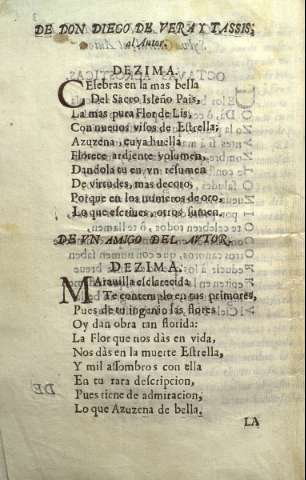 DE DON DIEGO DE VERA Y TASSIS,
al Autor.
DEZIMA.
CElebras en la mas bella
Del Sacro Isleño Pais,
La mas pura Flor de Lis,
Con nueuos visos de Estrella;
Azuzena, cuya huella
Florece ardiente volumen,
Dandola tu en vn resumen
De virtudes, mas decoro,
Porque en los numeros de oro,
Lo que escriues, otros sumen.
DE VN AMIGO DEL AVTOR,
DEZIMA.
MArauilla esclarecida
Te contemplo en tus primores,
Pues de tu ingenio las flores
Oy dan obra tan florida:
La Flor que nos dàs en vida,
Nos dàs en la muerte Estrella,
Y mil assombros con ella
En tu rara descripcion,
Pues tiene de admiracion,
Lo que Azuzena de bella.
LA